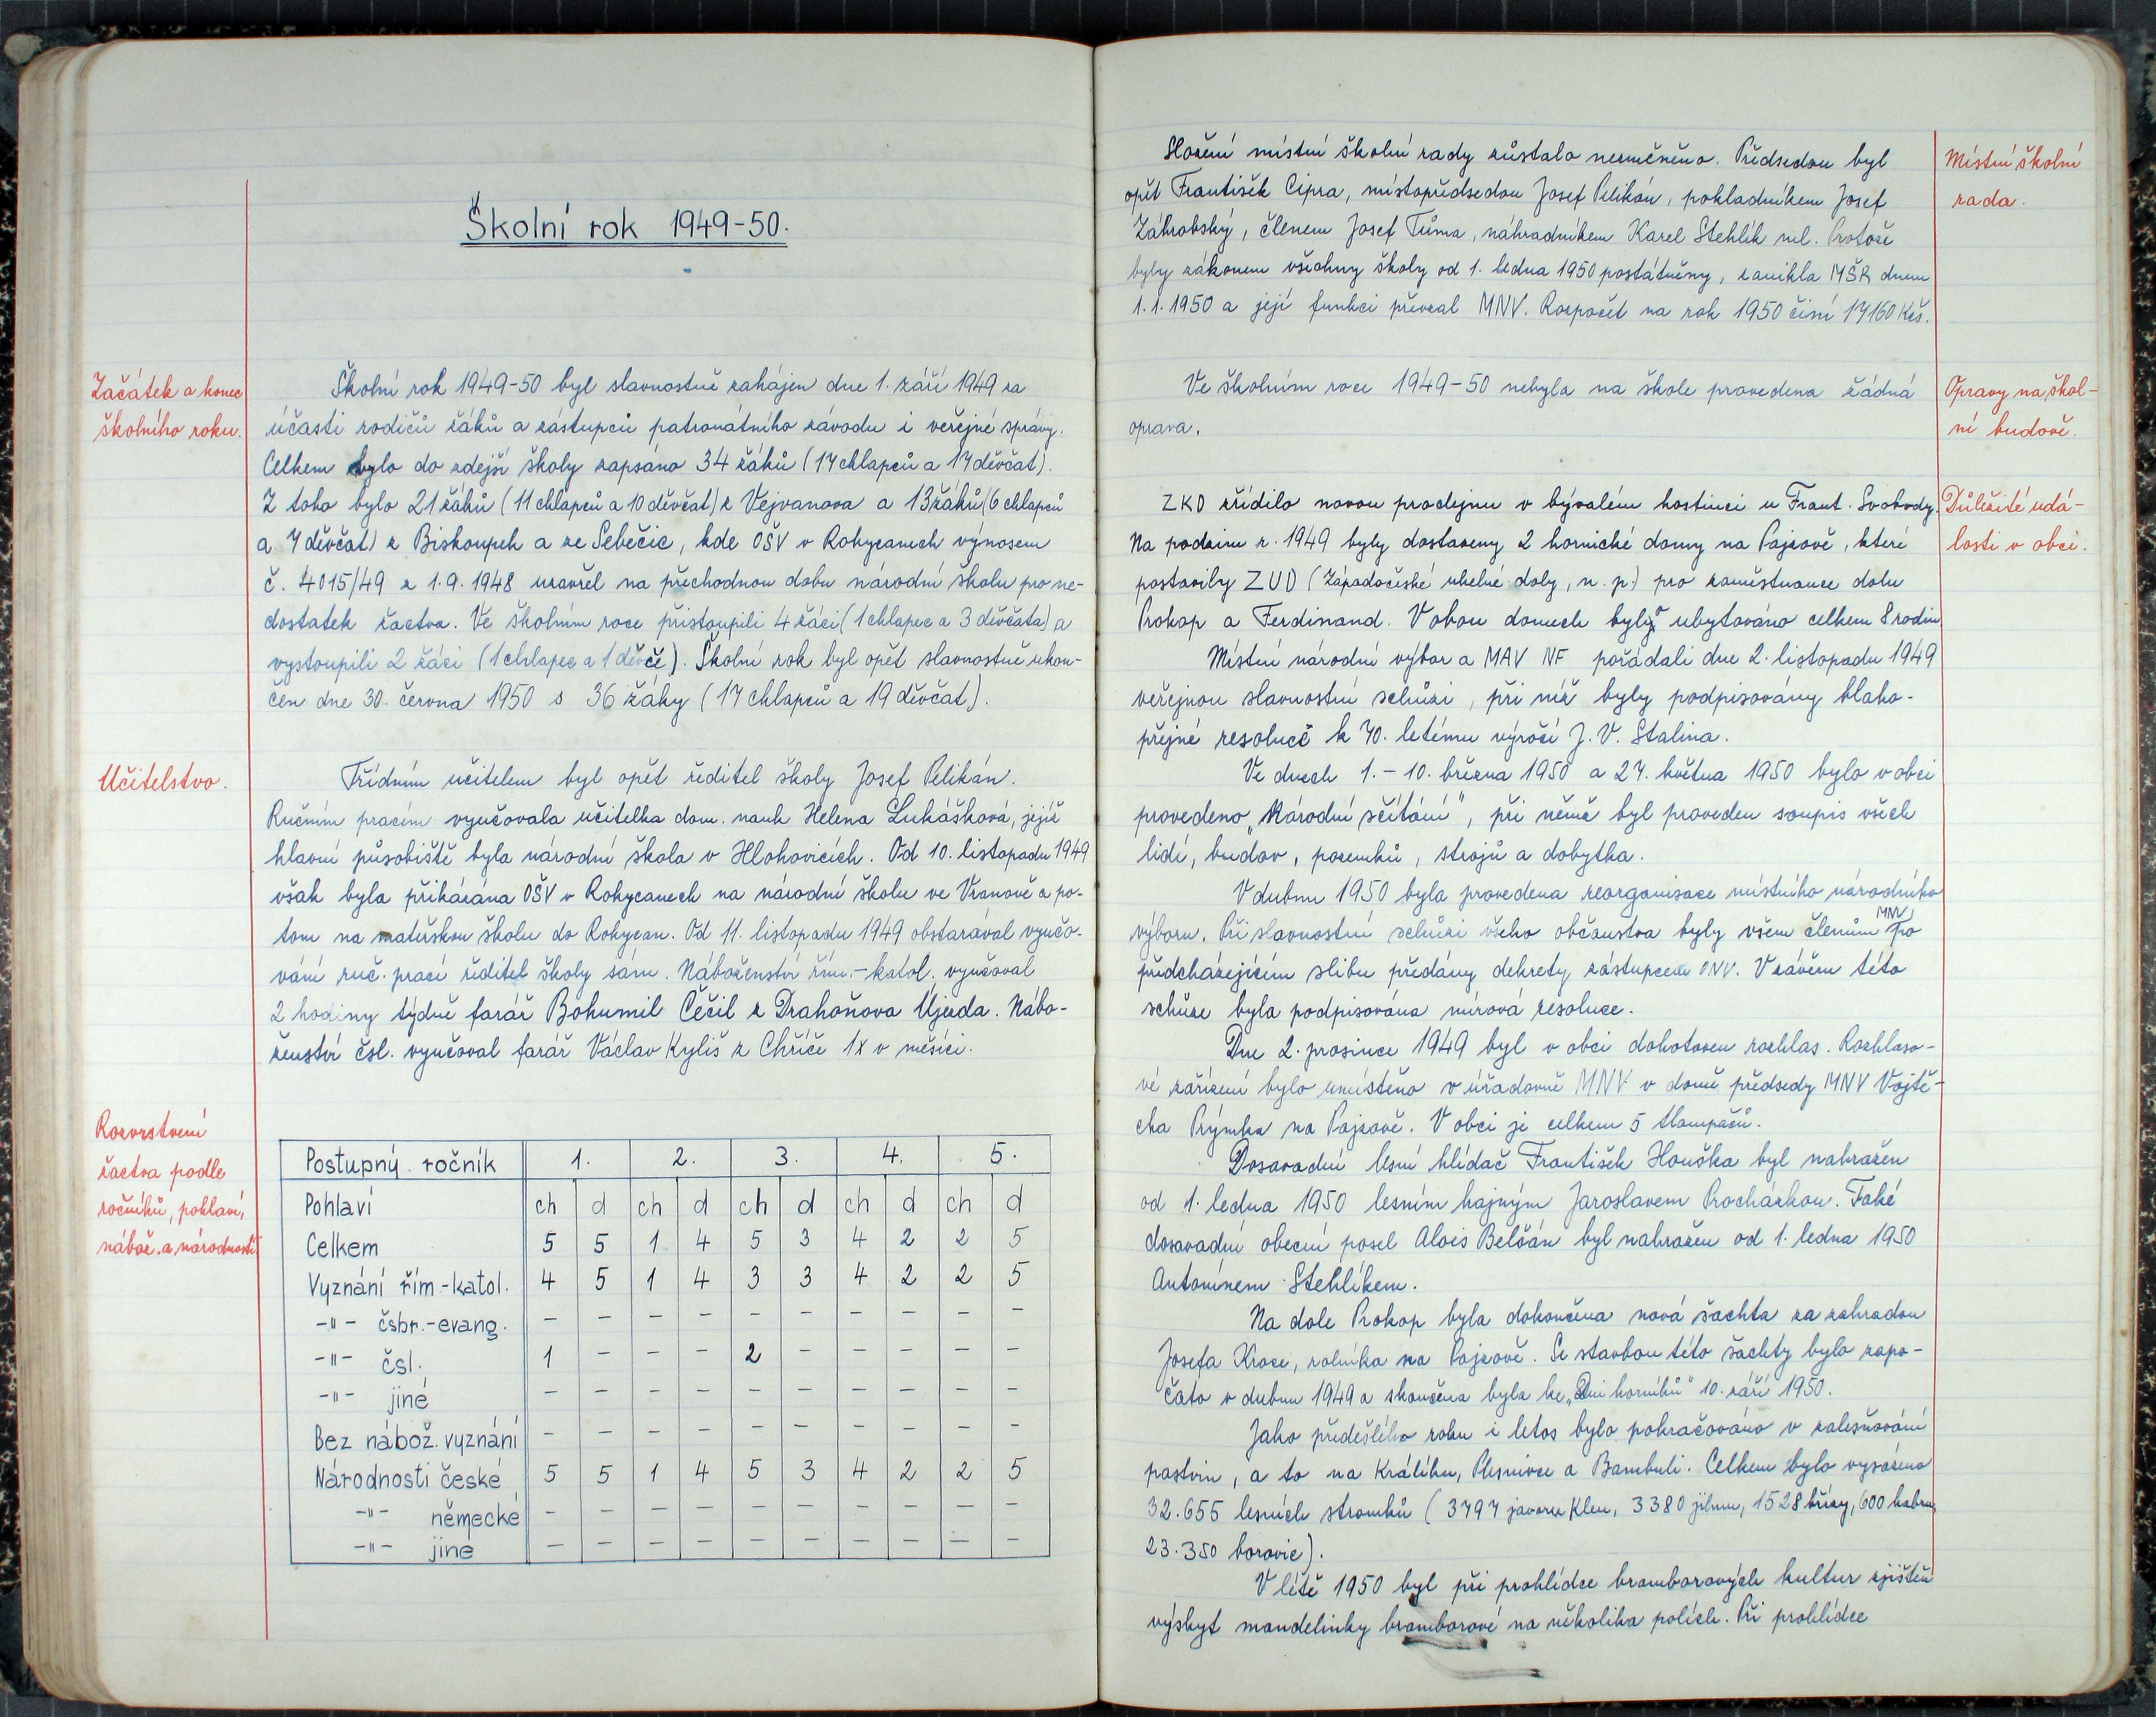 Školní rok 1949-50.
Začátek a konec
školního roku.
Školní rok 1949-50 byl slavnostně zahájen dne 1. září 1949 za
účasti rodičů žáků a zástupců patronátního závodu i veřejné správy.
Celkem bylo do zdejší školy zapsáno 34 žáků (17 chlapců a 17 děvčat).
Z toho bylo 21 žáků (11 chlapců a 10 děvčat) z Vejvanova a 13 žáků (6 chlapců
a 7 děvčat) z Biskoupek a ze Sebečic, kde OŠV v Rokycanech výnosem
č. 4015/49 z 1.9. 1948 uzavřel na přechodnou dobu národní školu pro ne-
dostatek žactva. Ve školním roce přistoupili 4 žáci (1 chlapec a 3 děvčata) a
vystoupili 2 žáci (1 chlapec a 1 děvče). Školní rok byl opět slavnostně ukon-
čen dne 30. června 1950 s 36 žáky (17 chlapců a 19 děvčat).
Učitelstvo.
Třídním učitelem byl opět ředitel školy Josef Pelikán.
Ručním pracím vyučovala učitelka dom. nauk Helena Lukášková, jejíž
hlavní působiště byla národní škola v Hlohovicích. Od 10. listopadu 1949
však byla přikázána OŠV v Rokycanech na národní školu ve Vranově a po-
tom na mateřskou školu do Rokycan. Od 11. listopadu 1949 obstarával vyučo-
vání ruč. prací ředitel školy sám. Náboženství řím.-katol. vyučoval
2 hodiny týdně farář Bohumil Čečil z Drahoňova Újezda. Nábo-
ženství čsl. vyučoval farář Václav Kyliš z Chříče 1x v měsíci.
Rozvrstvení
žactva podle
ročníků, pohlaví,
nábož. a národnosti
Postupný ročník 1. 2. 3. 4. 5.
Pohlaví ch d ch d ch d ch d ch d
Celkem 5 5 1 4 5 3 4 2 2 5
Vyznání řím.-katol. 4 5 1 4 3 3 4 2 2 5
-"- čsbr.-evang. - - - - - - - - - -
-"- čsl. 1 - - - 2 - - - - -
-"- jiné - - - - - - - - - -
Bez nábož. vyznání - - - - - - - - - -
Národnosti české 5 5 1 4 5 3 4 2 2 5
-"- německé - - - - - - - - - -
-"- jine - - - - - - - - - -
Složení místní školní rady zůstalo nezměněno. Předsedou byl
opět František Cipra, místopředsedou Josef Pelikán, pokladníkem Josef
Záhrobský, členem Josef Tůma, náhradníkem Karel Stehlík ml. Protože
byly zákonem všechny školy od 1. ledna 1950 postátněny, zanikla MŠR dnem
1.1.1950 a její funkci převzal MNV. Rozpočet na rok 1950 činí 17160 Kčs.
Místní školní
rada.
Ve školním roce 1949-50 nebyla na škole provedena žádná
oprava.
Opravy na škol-
ní budově.
ZKD zřídilo novou prodejnu v bývalém hostinci u Frant. Svobody.
Na podzim r. 1949 byly dostaveny 2 hornické domy na Pajzově, které
postavily ZUD (Západočeské uhelné doly, n. p.) pro zaměstnance dolu
Prokop a Ferdinand. V obou domech bylo ubytováno celkem 8 rodin
Důležité udá-
losti v obci.
Místní národní výbor a MAV NF pořádali dne 2. listopadu 1949
veřejnou slavnostní schůzi, při níž byly podpisovány blaho-
přejné resoluce k 70. letému výročí J. V. Stalina.
Ve dnech 1. - 10. března 1950 a 27. května 1950 bylo v obci
provedeno „Národní sčítání", při němž byl proveden soupis všech
lidí, budov, pozemků, strojů a dobytka.
V dubnu 1950 byla provedena reorganisace místního národního
výboru. Při slavnostní schůzi všeho občanstva byly všem členům MNV po
předcházejícím slibu předány dekrety zástupcem ONV. V závěru této
schůze byla podpisována mírová resoluce.
Dne 2. prosince 1949 byl v obci dohotoven rozhlas. Rozhlaso-
vé zařízení bylo umístěno v úřadovně MNV v domě předsedy MNV Vojtě-
cha Prýmka na Pajzově. V obci je celkem 5 tlampačů.
Dosavadní lesní hlídač František Houška byl nahražen
od 1. ledna 1950 lesním hajným Jaroslavem Procházkou. Také
dosavadní obecní posel Alois Belšán byl nahražen od 1. ledna 1950
Antonínem Stehlíkem.
Na dole Prokop byla dokončena nová šachta za zahradou
Josefa Kroce, rolníka na Pajzově. Se stavbou této šachty bylo zapo-
čato v dubnu 1949 a skončena byla ke „Dni horníků" 10. září 1950.
Jako předešlého roku i letos bylo pokračováno v zalesňování
pastvin, a to na Králíku, Plesnivce a Bambuli. Celkem bylo vysázeno
32.655 lesních stromků (3797 javoru klenu, 3380 jilmu, 1528 břízy, 600 habru,
23.350 borovic).
V létě 1950 byl při prohlídce bramborových kultur zjištěn
výskyt mandelinky bramborové na několika polích. Při prohlídce